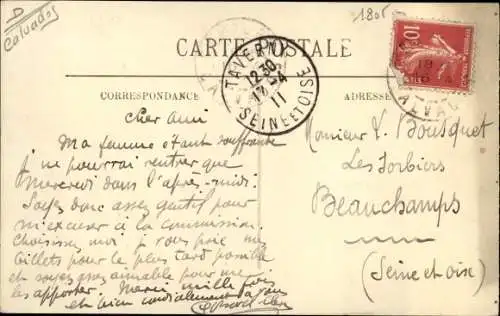 D
Calvados
1805
CARTE POSTALE
TAVERNY
12 30
17 -4
11
SEINE ET OISE
10
CORRESPONDANCE
ADRESSE
Cher Ami
Ma femme étant souffrante
je ne pourrai rentrer que
Mercredi dans l'après-midi.
Soyez donc assez gentil pour
m'excuser à la commission.
Choisissez moi je vous prie mes
billets pour le plus tard possible
et soyez assez aimable pour me
les apporter. Merci mille fois
et bien cordialement à vous
Monsieur Bousquet
Les Sorbiers
Beauchamps
(Seine et oise)